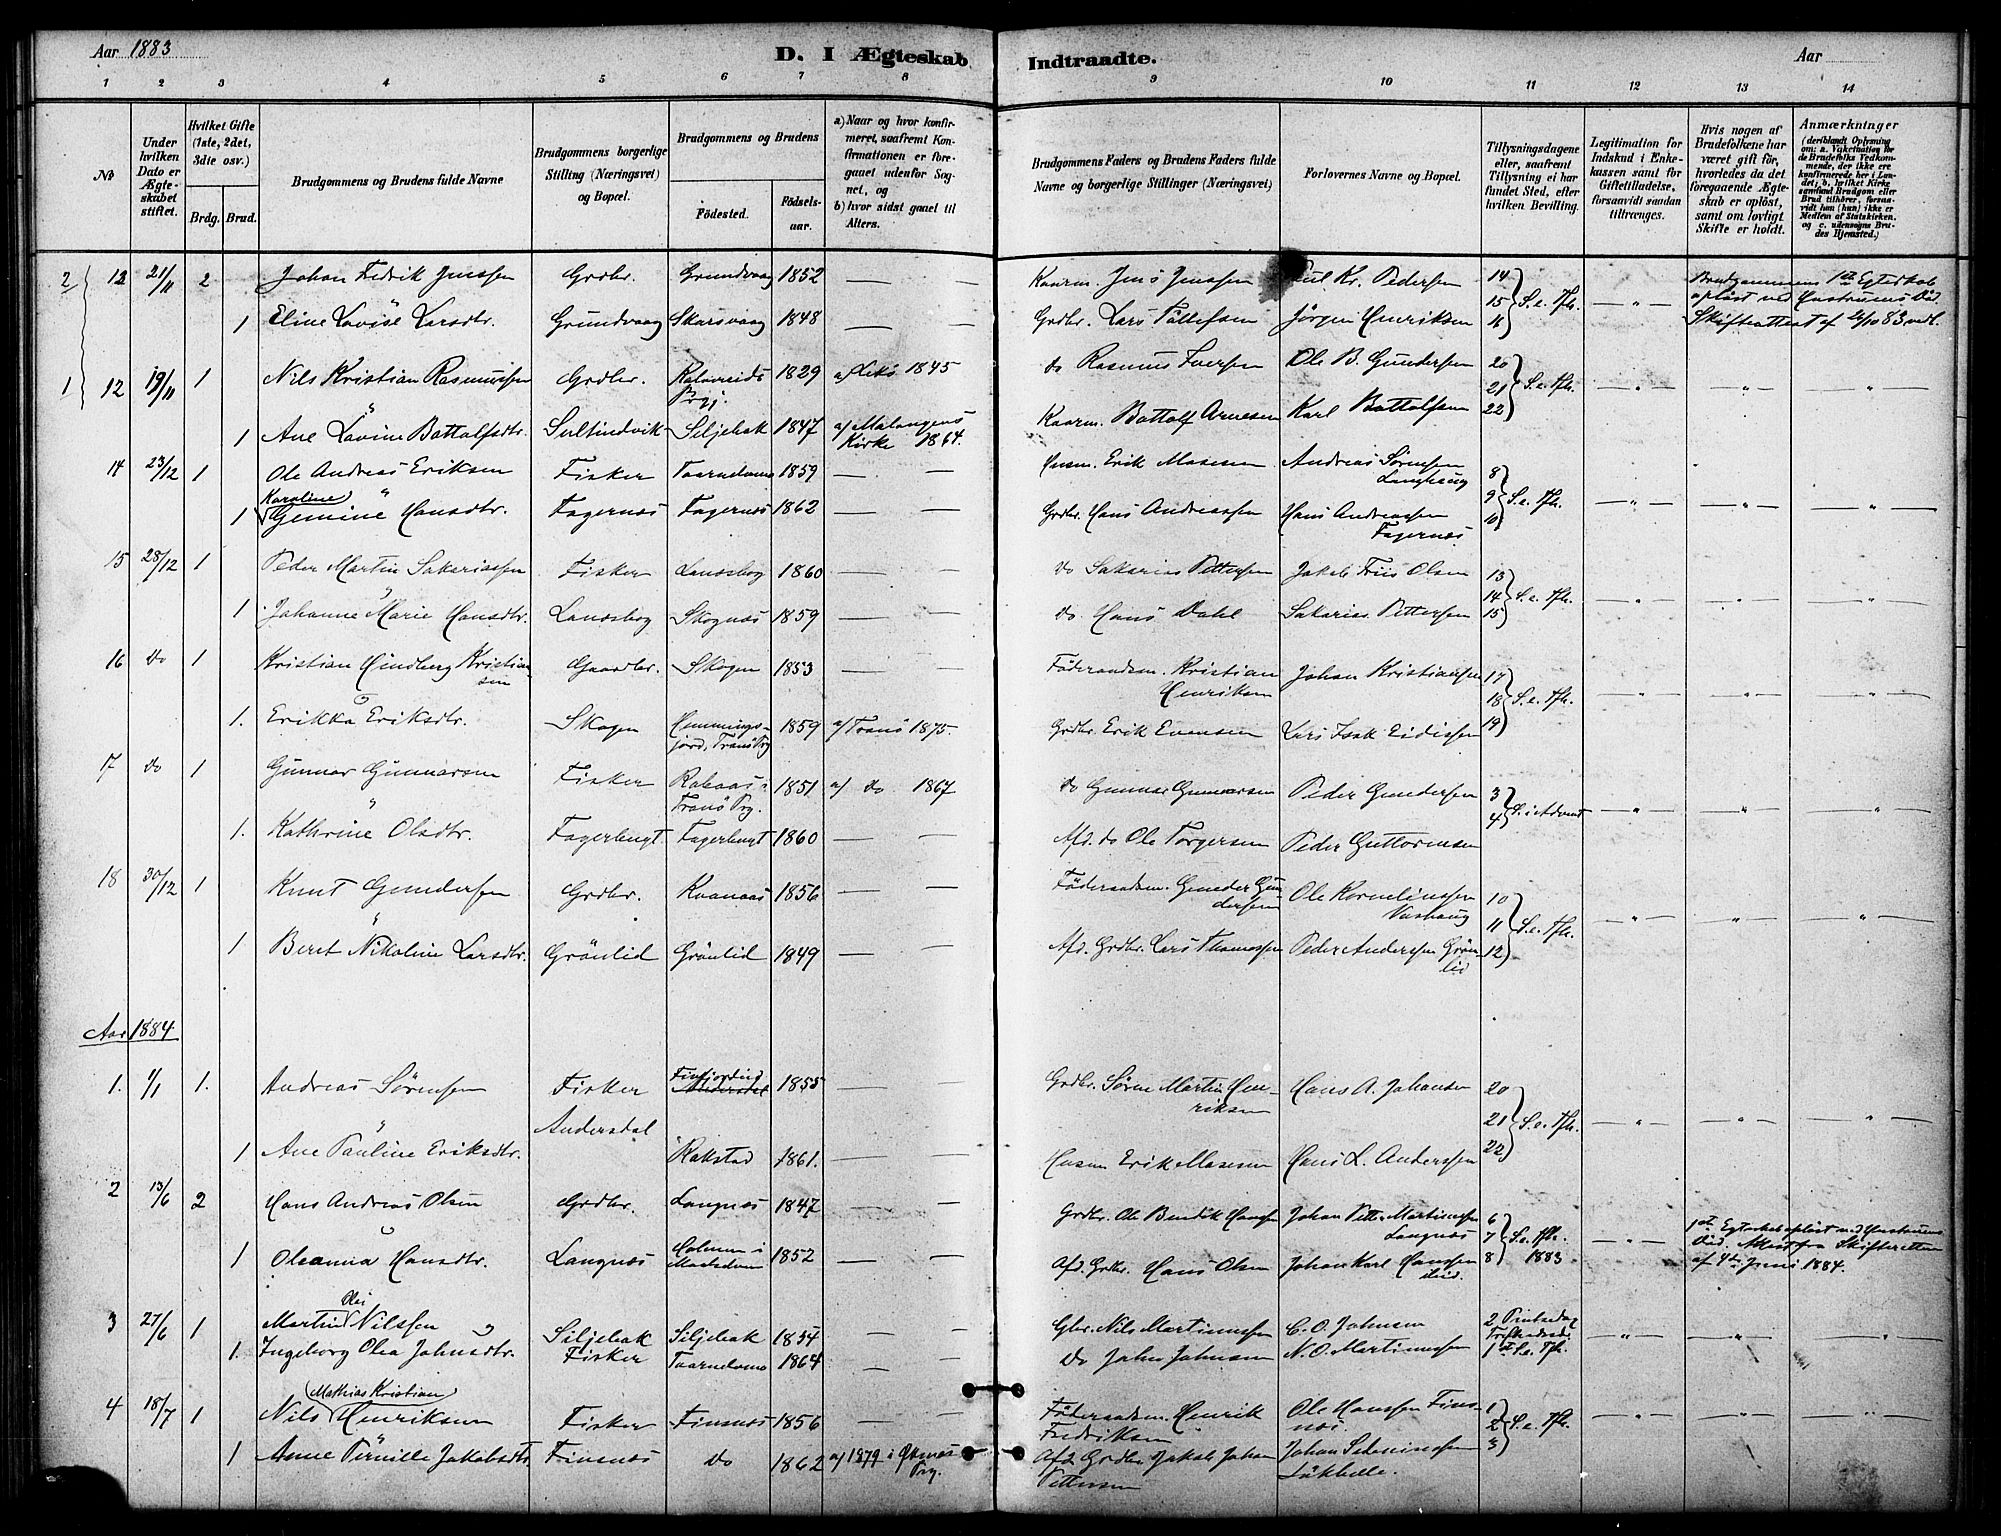 Aar 1883
D. I Ægteskab Indtraadte.
Aar
1 2 3 4 5 6 7 8 9 10 11 12 13 14
No
Under hvilken Dato er Ægteskabet stiftet.
Hvilket Gifte (1ste, 2det, 3die osv.)
Brdg. Brud.
Brudgommens og Brudens fulde Navne
Brudgommens borgerlige Stilling (Næringsvei) og Bopæl.
Brudgommens og Brudens
Fødested.
Fødselsaar.
a) Naar og hvor konfirmeret, saafremt Konfirmationen er foregaaet udenfor Sognet, og
b) hvor sidst gaaet til Alters.
Brudgommens Faders og Brudens Faders fulde Navne og borgerlige Stillinger (Næringsvei)
Forlovernes Navne og Bopæl.
Tillysningsdagene eller, saafremt Tillysning ei har fundet Sted, efter hvilken Bevilling.
Legitimation for Indskud i Enkekassen samt for Giftetilladelse, forsaavidt saadan tiltrænges.
Hvis nogen af Brudefolkene har været gift før, hvorledes da det foregaaende Ægteskab er opløst, samt om lovligt Skifte er holdt.
Anmærkninger
(deriblandt Oplysning om: a. Vaksination for de Brudefolks Vedkommende, der ikke ere konfirmerede her i Landet; b. hvilket Kirkesamfund Brudgom eller Brud tilhører, forsaavidt han (hun) ikke er Medlem af Statskirken, og c. udensogns Brudes Hjemsted.)
2 12 21/11 2 Johan Fedrik Jenssen Grdbr. Grundvaag 1852 — — Kaarm. Jens Jenssen Kr. Pedersen 14 15 16 S. e. Tfh. — " — Brudgommens 1ste Egteskab opløst ved Hustruens Død. Skifteattest af 26/10 83 vedl.
1 Eline Lovise Larsdtr. Grundvaag Skarsvaag 1848 — — Grdbr. Lars Tollefsen Jörgen Henriksen
1 12 19/11 1 Nils Kristian Rasmussen Grdbr. Kolvereids Prgj. 1829 a/ Lekö 1845 do Rasmus Iversen Ole B. Gundersen 20 21 22 S. e. Tfh. — " — " — " —
1 Ane Lovine Bottolfsdtr. Sultindvik Siljebak 1847 a/ Malangens Kirke 1864. Kaarm. Bottolf Arnesen Karl Bottolfsen
14 23/12 1 Ole Andreas Eriksen Fisker Taarnelvmo 1859 — — Husm. Erik Mosesen Andreas Sörensen 8 9 10 S. e. Tfh. — " — " — " —
1 Karoline Gemine Hansdtr. Fagernæs Fagernæs 1862 — — Grdbr. Hans Andreassen Hans Andreassen Fagernæs
15 28/12 1 Peder Martin Sakariassen Fisker Lanesbog 1860 — — do Sakarias Pettersen Jakob Friis Olsen 13 14 15 S. e. Tfh. — " — " — " —
1 Johanne Marie Hansdtr. Lanesbog Skognæs 1859 — — do. Hans Dahl Sakarias Pettersen
16 do 1 Kristian Hindberg Kristiansen Gaardbr. Skogen 1853 — — Föderaadsm. Kristian Henriksen Johan Kristiansen 17 18 19 S. e. Tfh. — " — " — " —
1. Erikka Eriksdtr. Skogen Hemmingsjord, Tranö Prg 1859 a/ Tranö 1875. Grdbr. Erik Evensen Lars Isak Eidissen
17 do 1 Gunnar Gunnarsen Fisker Rabaas i Tranö Prg. 1851 a/ do 1867 do Gunnar Gunnarsen Peder Gundersen 3 4 S. i Advent — " — " — " —
1. Kathrine Olsdtr. Fagerbugt. Fagerbugt 1860 — — Afd. do Ole Torgersen Peder Guttormsen
18 30/12 1 Knut Gundersen Grdbr. Kvanaas 1856 — — Föderaadsm. Gunder Gundersen Ole Kornelinssen 10 11 12 S. e. Tfh. — " — " — " —
1 Beret Nikoline Larsdtr. Grönlid Grönlid 1849 — — Afd. Grdbr. Lars Thomassen Peder Anderssen Grönlid
Aar 1884
1. 1/1 1. Andreas Sörensen Fisker Finfjordeid 1855 — — Grdbr. Sören Martin Henriksen Hans A. Johansen 20 21 22 S. e. Tfh. — " — " — " —
Andersdal
1 Ane Pauline Eriksdtr. Rakstad 1861. — — Husm Erik Mosesen Hans L. Anderssen
2 13/6 2 Hans Andreas Olsen Grdbr. Langnæs 1847 — — Grdbr. Ole Bendik Hanssen Johan Petter Martinussen Langnæs 6 7 8 S. e. Tfh. 1883 — " — 1ste Egteskab opløst ved Hustruens Død. Attest fra Skifteretten af 4de Juni 1884.
1 Oleanna Hansdtr. Langnæs Holmen i 1852 — — Afd. Grdbr. Hans Olsen Johan Karl Hanssen
3 27/6 1 Martin Olai Nilssen Siljebak Siljebak 1854 — — Gbr. Nils Martinussen C. O. Johnsen 2 Pintsedag Trefoldheds 1ste S. e. Tfh. — " — " — " —
1. Ingeborg Olea Johnsdtr. Fisker Taarnelvmo 1864 — — do John Johnsen N. O. Martinussen
4 18/7 1 Nils Mathias Kristian Henriksen Fisker Finsnæs 1856 — — Föderaadsm. Henrik Fredriksen Ole Hanssen Finsnæs 1 2 3 S. e. Tfh. — " — " — " —
1 Anne Pernille Jakobsdtr. Finsnæs do 1862 a/ 1879 i Öksnæs Prg. Afd. Grdbr. Jakob Johan Pettersen Johan Seleniussen